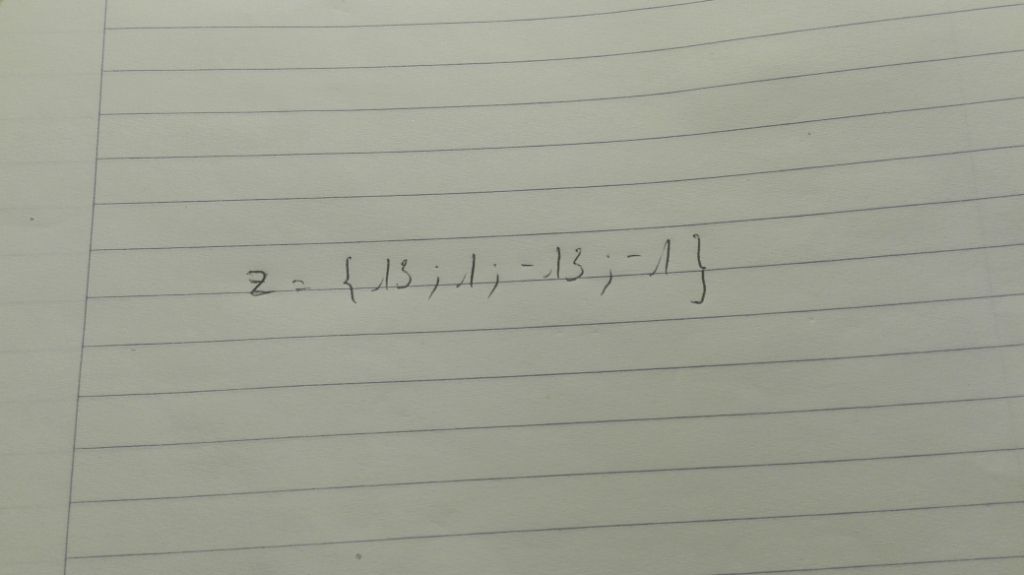 z = { 13 ; 1 ; - 13 ; - 1 }